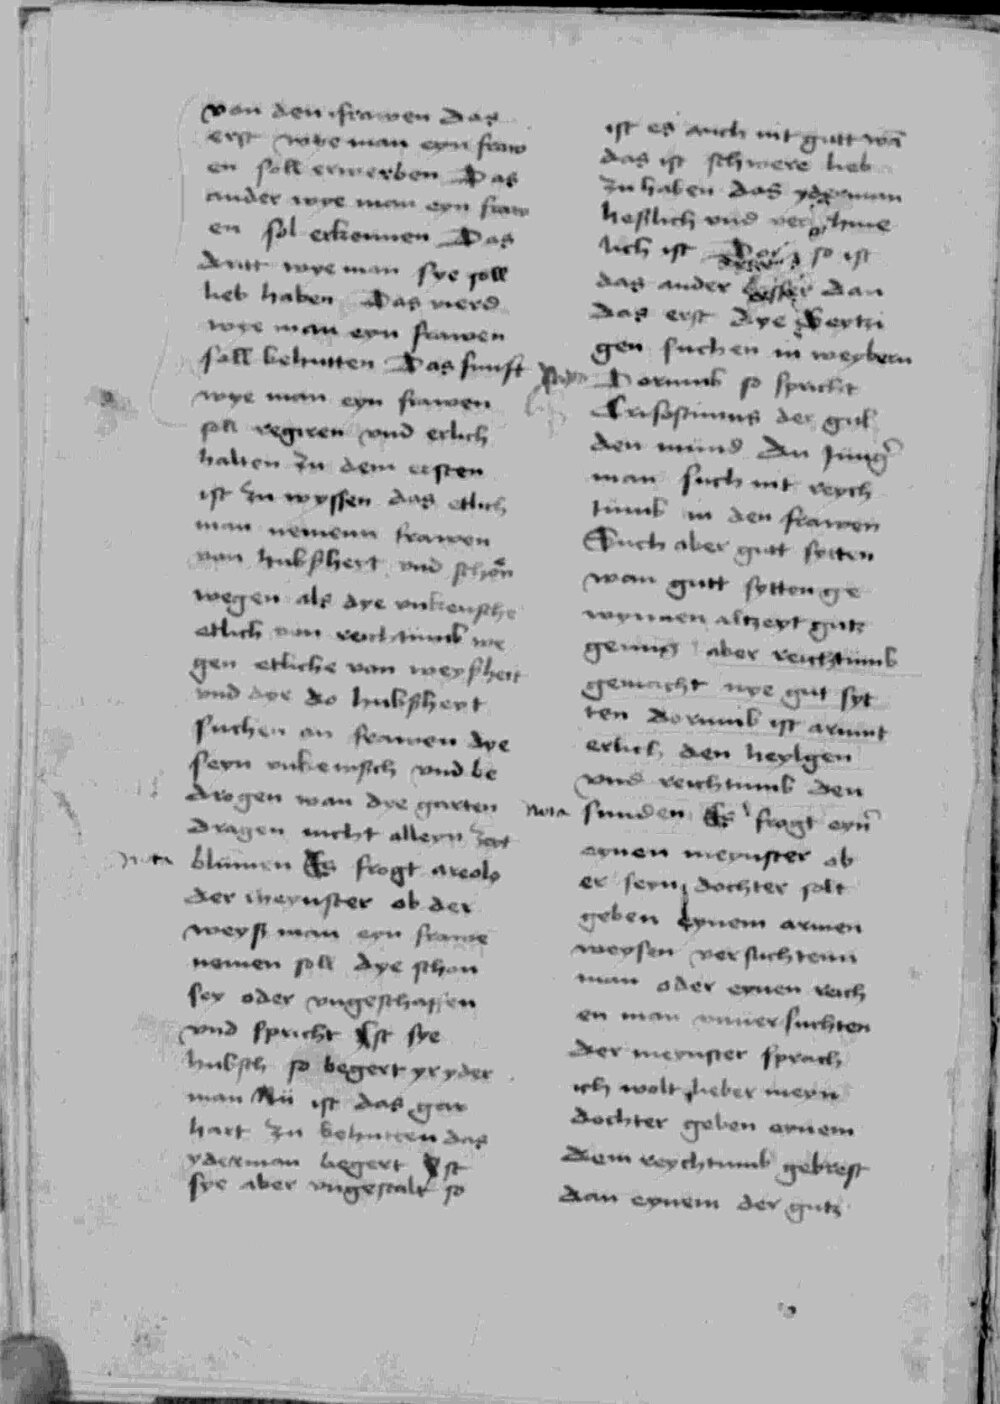 von den frawen Das
erst wye man eyn fraw
en soll erwerben Das
ander wye man eyn fraw
en sol erkennen Das
dritt wye man sye soll
lieb haben Das vierd
wye man eyn frawen
soll behutten Das funft
wye man eyn frawen
soll regiren vnd erlich
halten Zu dem ersten
ist zu wyssen das etlich
man nemenn frawen
von hubscheyt vnd schön
wegen als dye vnkeusche
etlich von reichtumb we
gen etliche von weyßheit
vnd dye do hubscheyt
suchen an frawen dye
seyn vnkewsch vnd be
drogen wan dye garten
dragen nicht alleyn zeyt
nota
blumen Es frogt areolo
der meynster ob der
weyß man eyn frawe
nemen soll dye schon
sey oder vngeschaffen
vnd spricht Ist sye
hubsch so begert yr yder
man Nu ist das gar
hart zu behutten das
yderman begert Ist
sye aber vngestalt so
ist es auch nit gutt wā
das ist schwere lieb
zu haben das yderman
heßlich vnd
lich ist so ist
das ander dan
das erst dye
gen suchen in weybern
Dorumb so spricht
Crisostimus der gul
den mund An Jung
man such nit reych
tumb in den frawen
Such aber gutt sytten
wan gutt sytten ge
wynnen altzeyt gutz
genung aber reichtumb
gemacht nye gut syt
ten Dorumb ist armut
erlich den heylgen
vnd reichtumb den
nota
sunden Es fragt eyn
eynen meynster ob
er seyn dochter solt
geben eynem armen
weysen versuchtenn
man oder eynen reich
en man vnuersuchten
der meynster sprach
ich wolt lieber meyn
dochter geben eynem
dem reychtumb gebrest
dan eynem der gutz